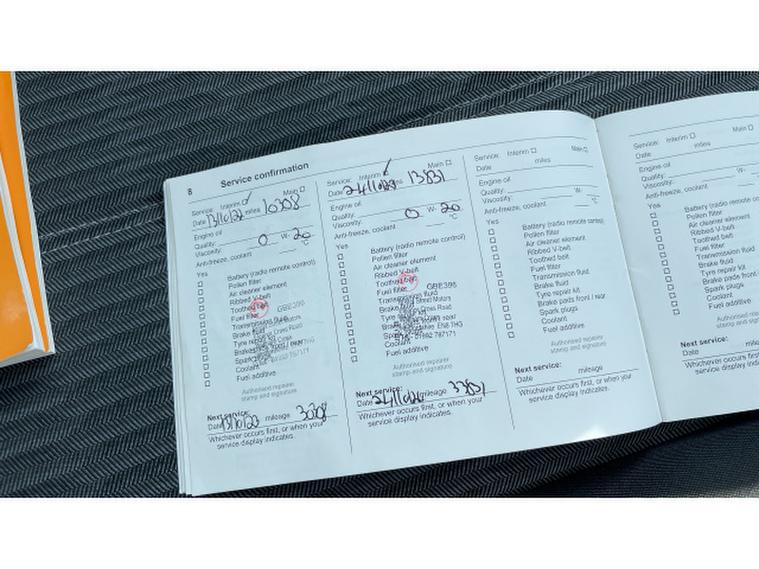 8 Service confirmation
Service: Interim Main
Date 13/10/22 miles 10308
Engine oil
Quality:
Viscosity: 0 W- 20
Anti-freeze, coolant °C
Yes
Battery (radio remote control)
Pollen filter
Air cleaner element
Ribbed V-belt
Toothed belt
Fuel filter
Transmission fluid
Brake fluid
Tyre repair kit
Brake pads front / rear
Spark plugs
Coolant
Fuel additive
Authorised repairer
stamp and signature
Next service:
Date 13/10/23 mileage 30308
Whichever occurs first, or when your
service display indicates.
Service: Interim Main
Date miles 13831
Engine oil
Quality:
Viscosity: 0 W- 20
Anti-freeze, coolant °C
Yes
Battery (radio remote control)
Pollen filter
Air cleaner element
Ribbed V-belt
Toothed belt
Fuel filter GBE396
Transmission fluid
Brake fluid
Tyre
Brake rear
Spark EN8 7HG
Coolant 01992 767171
Fuel additive
Authorised repairer
stamp and signature
Next service:
Date mileage 33831
Whichever occurs first, or when your
service display indicates.
Service: Interim Main
Date miles
Engine oil
Quality:
Viscosity: W-
Anti-freeze, coolant °C
Yes
Battery (radio remote control)
Pollen filter
Air cleaner element
Ribbed V-belt
Toothed belt
Fuel filter
Transmission fluid
Brake fluid
Tyre repair kit
Brake pads front / rear
Spark plugs
Coolant
Fuel additive
Authorised repairer
stamp and signature
Next service:
Date mileage
Whichever occurs first, or when your
service display indicates.
Service: Interim Main
Date miles
Engine oil
Quality:
Viscosity:
Anti-freeze, coolant
Yes
Battery (radio remote
Pollen filter
Air cleaner element
Ribbed V-belt
Toothed belt
Fuel filter
Transmission fluid
Brake fluid
Tyre repair kit
Brake pads front / rear
Spark plugs
Coolant
Fuel additive
Authorised repairer
stamp and signature
Next service:
Date mileage
Whichever occurs first, or when
service display indicates.